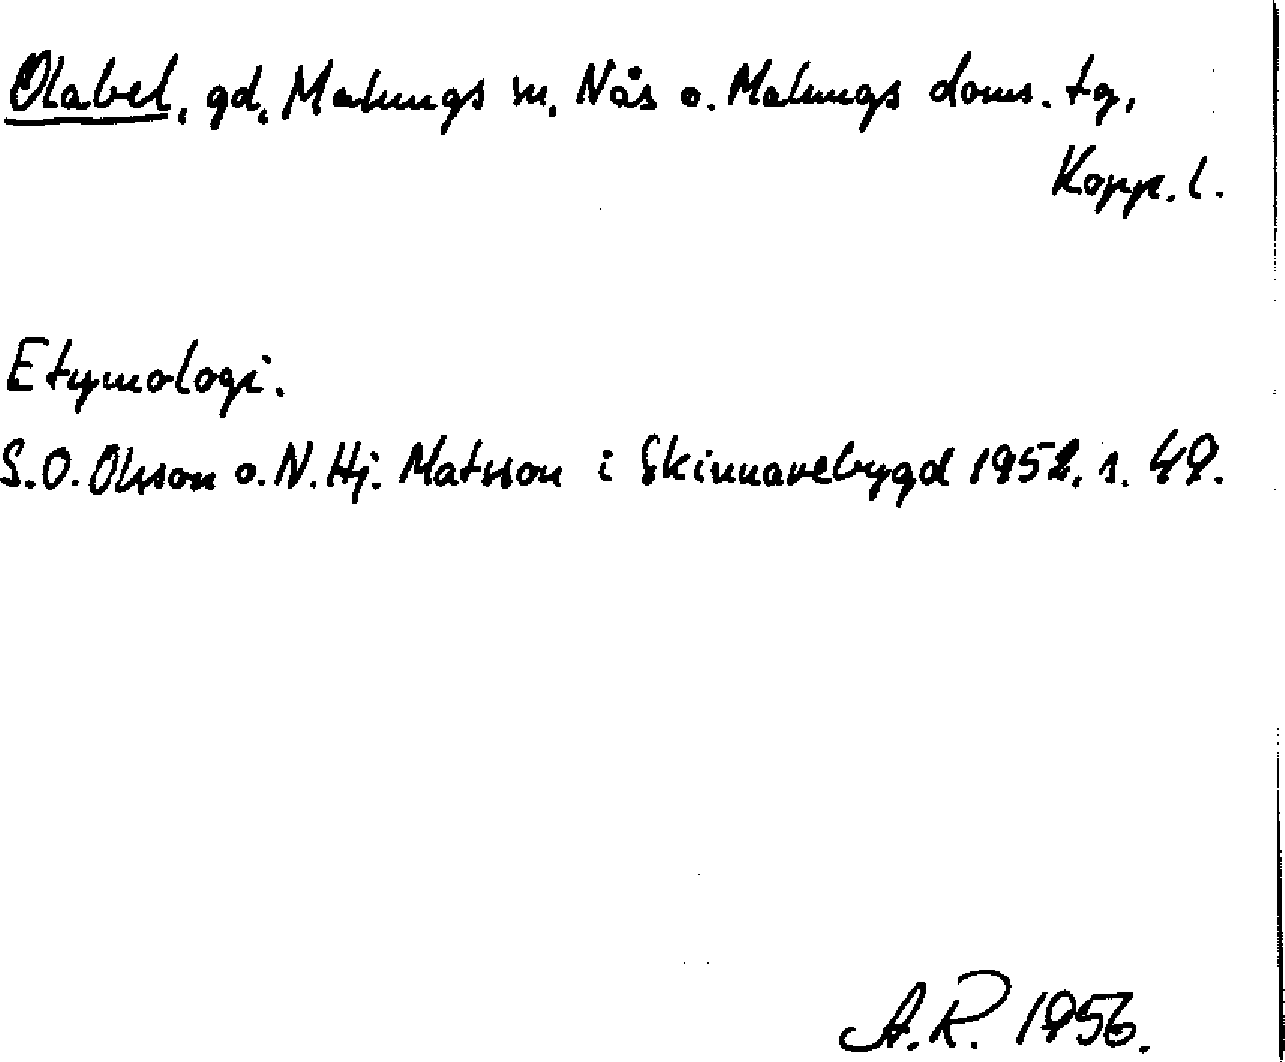 Olabel, gd, Malungs sn, Nås o. Malungs doms. tg,
Kopp. l.
Etymologi.
S.O. Olsson o. N. Hj. Matsson i Skinnarebygd 1952, s. 49.
A.R. 1956.